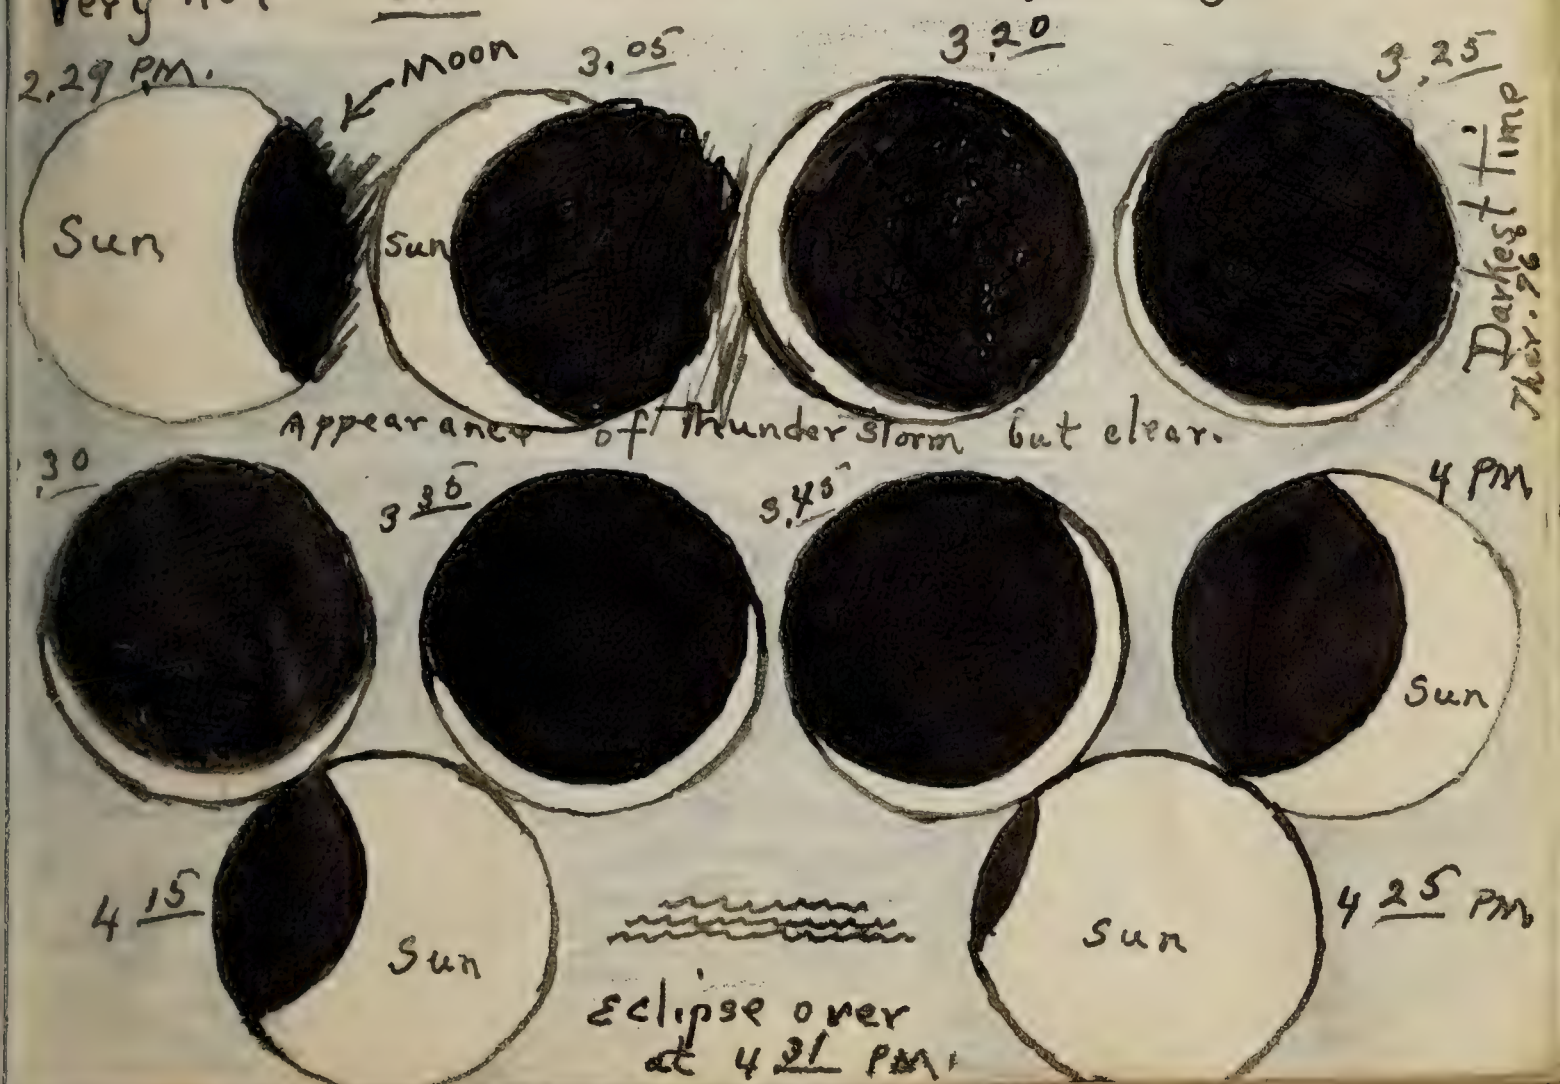 Very
2.29 PM.
Moon
3.05
3.20
3.25
Sun
Sun
Darkest time
Ther. 76
Appearance of Thunder Storm but clear.
.30
3 35
3.45
4 PM
Sun
4 15
Sun
Sun
4 25 PM.
Eclipse over
at 4 31 PM.